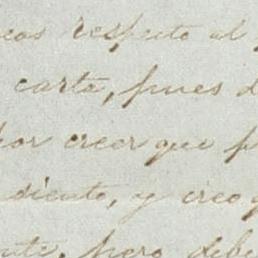 cas respeto al
carta, pues d
por creer que p
diente, y creo q
nte, pero debe